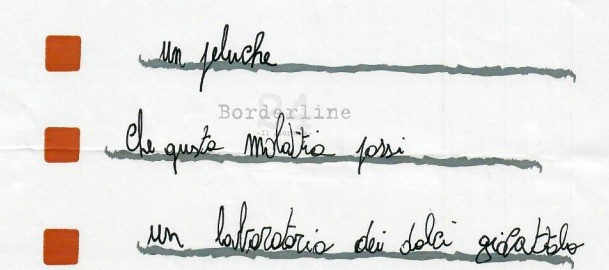 un peluche
Borderline
24
che questa malatia passi
un laboratorio dei dolci giocattolo